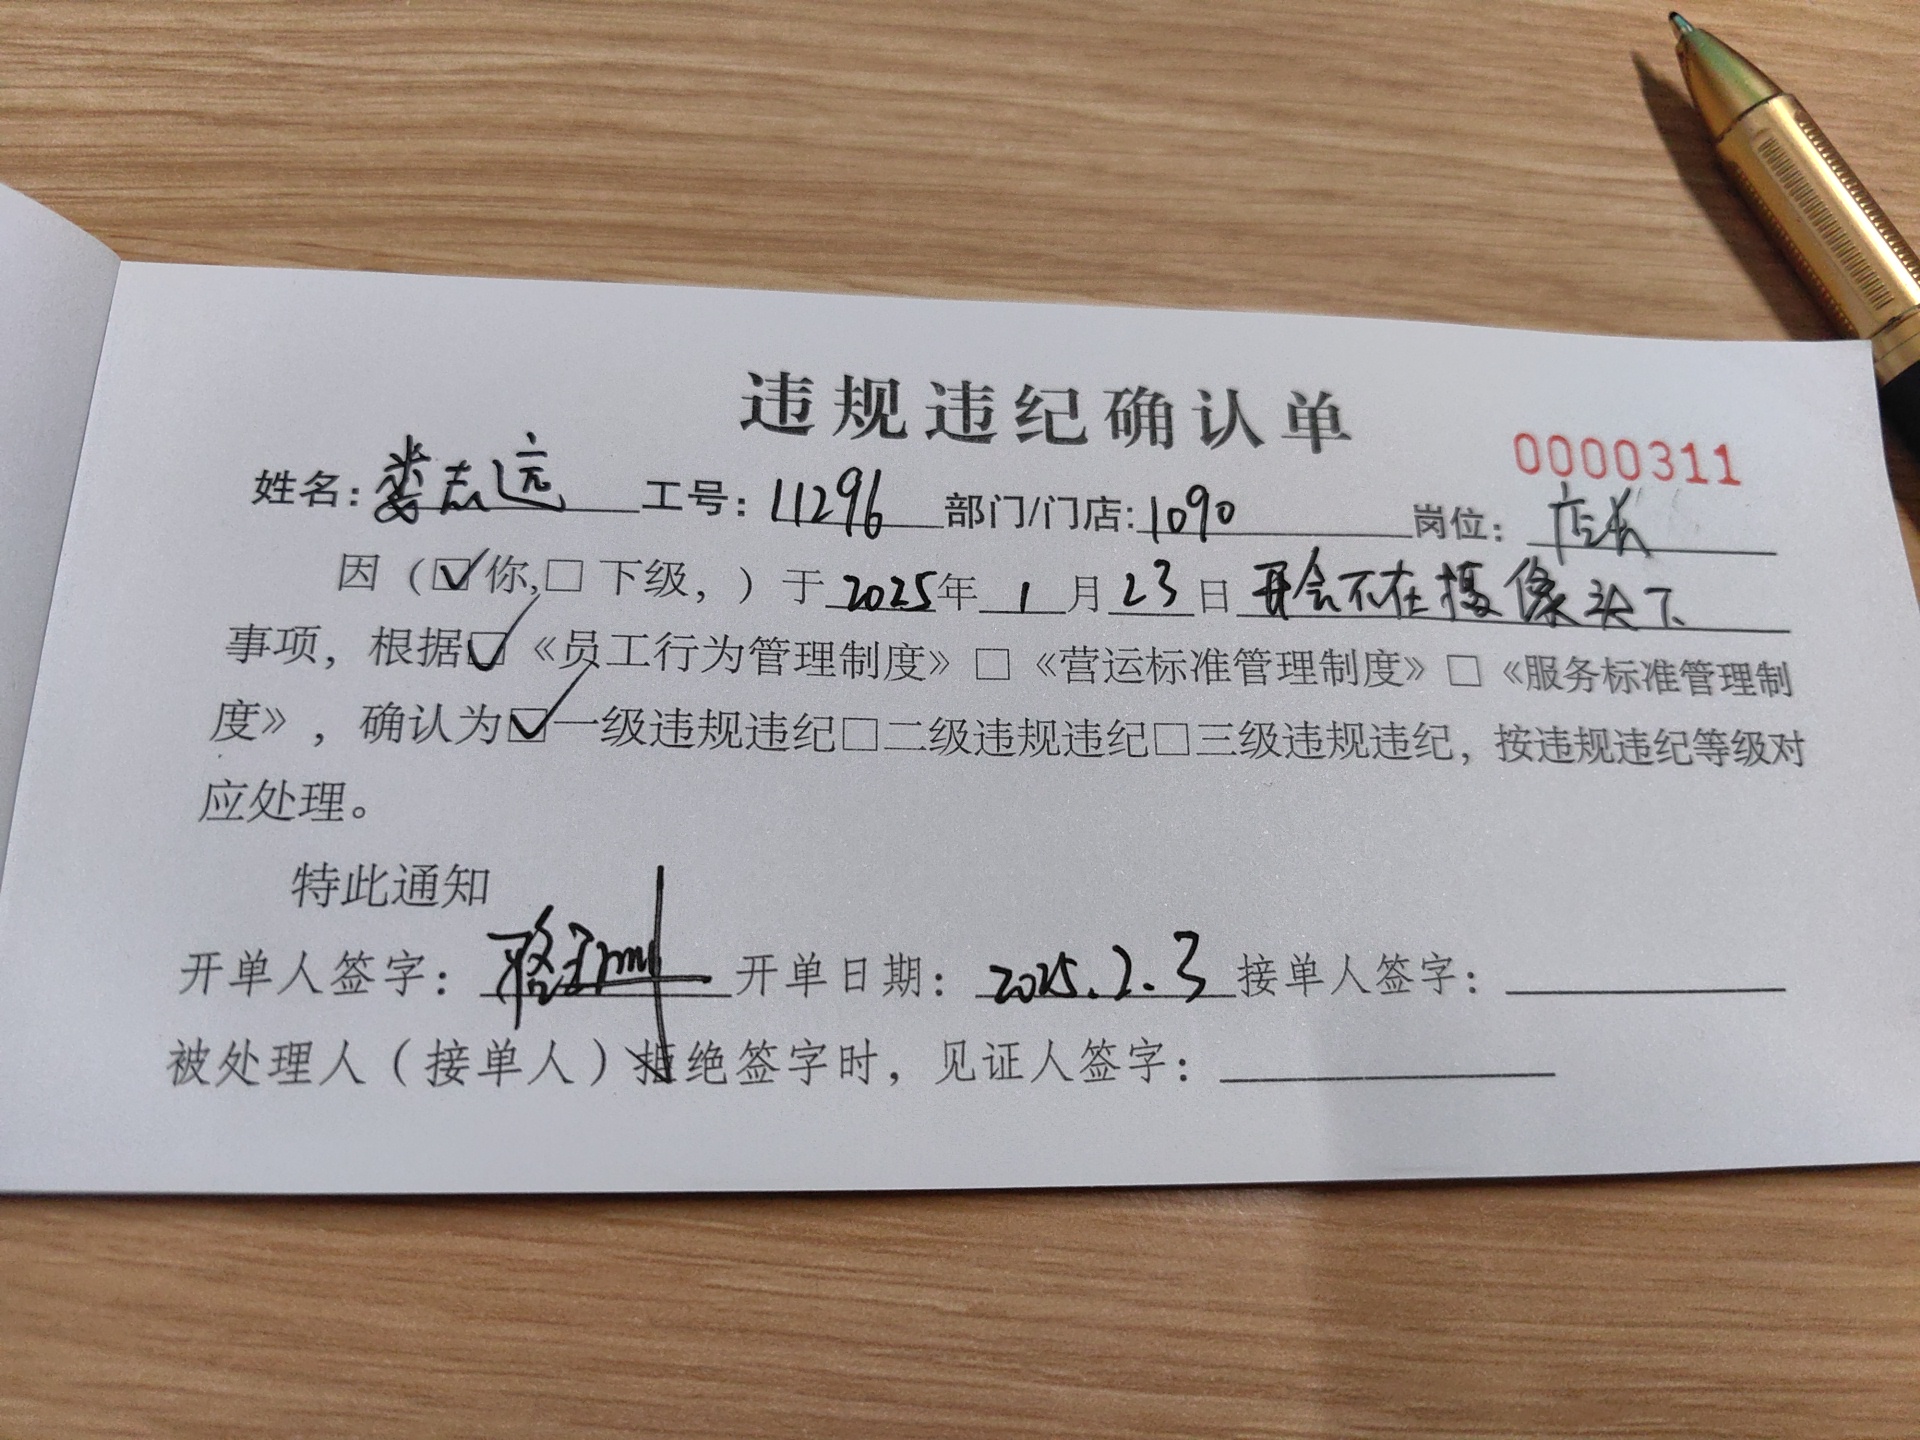 违规违纪确认单
0000311
姓名：娄志远 工号：11296 部门/门店：1090 岗位：店长
因（☑你，□下级，）于2025年1月23日开会不在摄像头下
事项，根据☑《员工行为管理制度》□《营运标准管理制度》□《服务标准管理制
度》，确认为☑一级违规违纪□二级违规违纪□三级违规违纪，按违规违纪等级对
应处理。
特此通知
开单人签字： 开单日期：2025.2.3 接单人签字：
被处理人（接单人）拒绝签字时，见证人签字：